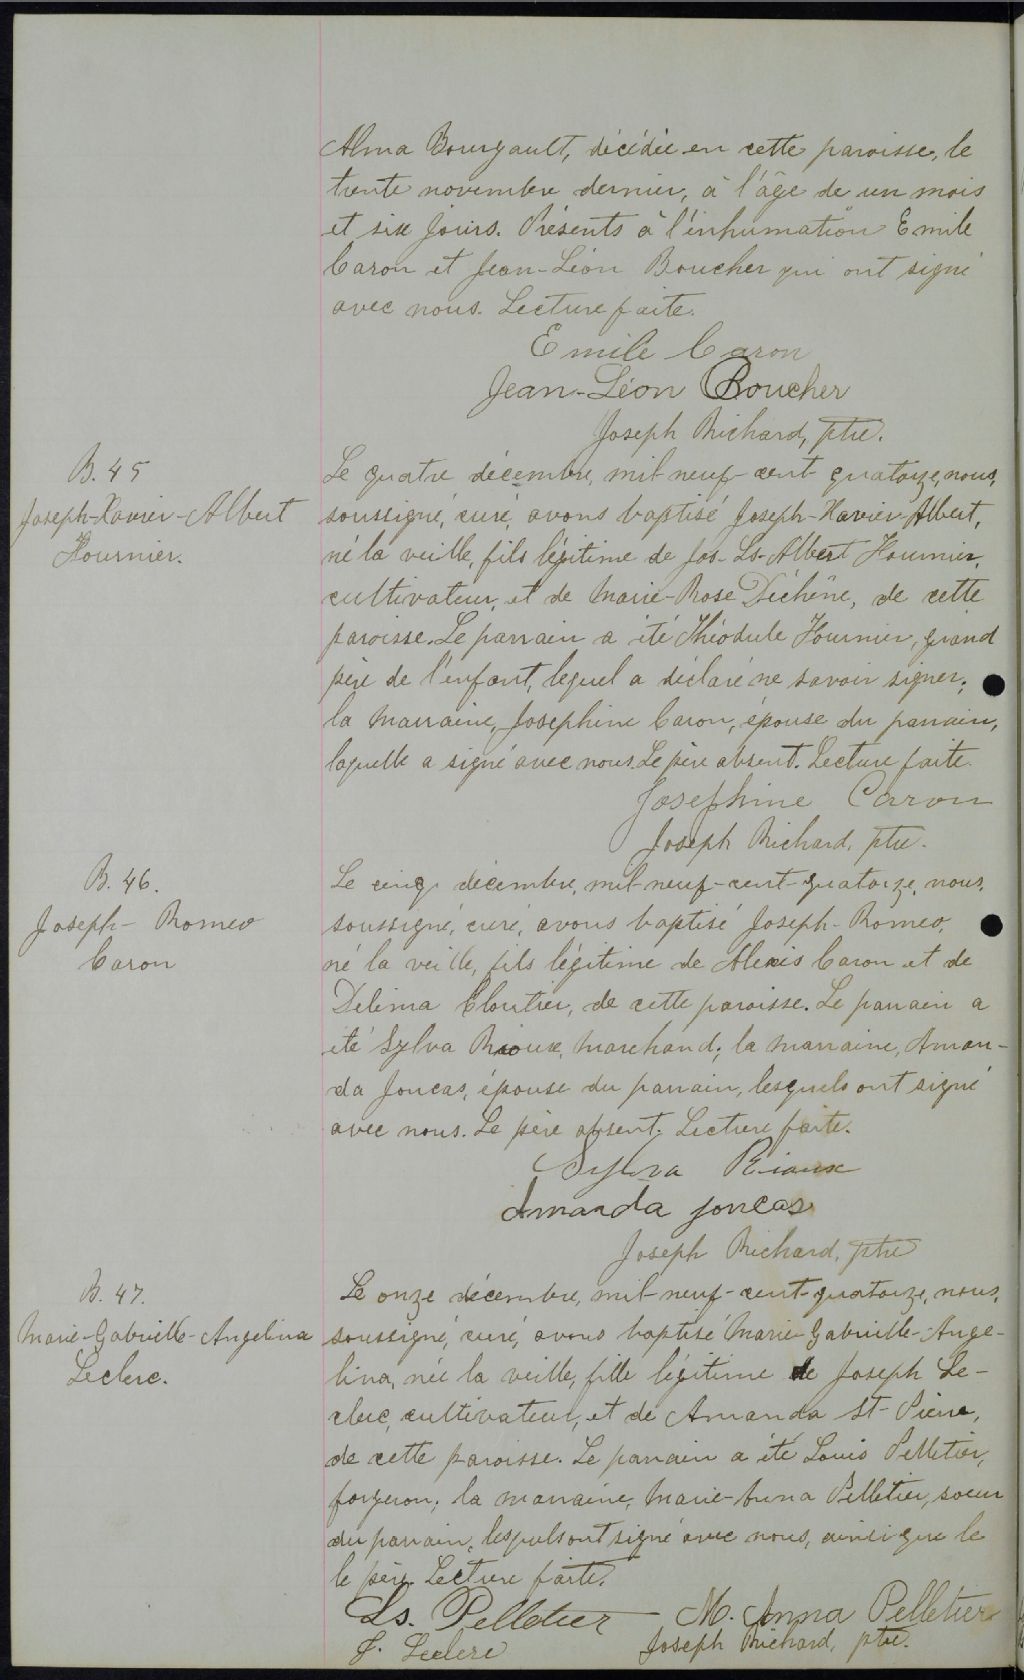 Alma Bourgault, décédée en cette paroisse, le
trente novembre dernier, à l'âge de un mois
et six jours. Présents à l'inhumation Emile
Caron et Jean-Léon Boucher qui ont signé
avec nous. Lecture faite.
Emile Caron
Jean-Léon Boucher
Joseph Richard, ptre.
B. 45
Joseph-Xavier-Albert
Fournier.
Le quatre décembre, mil neuf-cent quatorze, nous,
soussigné, curé, avons baptisé Joseph-Xavier-Albert,
né la veille, fils légitime de Jos-Ls-Albert Fournier,
cultivateur, et de Marie-Rose Déchêne, de cette
paroisse. Le parrain a été Théodule Fournier, grand
père de l'enfant, lequel a déclaré ne savoir signer;
la marraine, Josephine Caron, épouse du parrain,
laquelle a signé avec nous. Le père absent. Lecture faite.
Josephine Caron
Joseph Richard, ptre.
B. 46.
Joseph-Romeo
Caron
Le cinq décembre, mil-neuf-cent-quatorze, nous,
soussigné, curé, avons baptisé Joseph-Romeo,
né la veille, fils légitime de Alexis Caron et de
Delima Cloutier, de cette paroisse. Le parrain a
été Sylva Rioux, marchand; la marraine, Aman-
da Joncas, épouse du parrain, lesquels ont signé
avec nous. Le père absent. Lecture faite.
Sylva Rioux
Amanda Joncas
Joseph Richard, ptre
B. 47.
Marie-Gabrielle-Angelina
Leclerc.
Le onze décembre, mil-neuf-cent-quatorze, nous,
soussigné, curé, avons baptisé Marie-Gabrielle-Ange-
lina, née la veille, fille légitime de Joseph Le-
clerc, cultivateur, et de Amanda St-Pierre,
de cette paroisse. Le parrain a été Louis Pelletier,
forgeron; la marraine, Marie-Anna Pelletier, soeur
du parrain, lesquels ont signé avec nous, ainsi que le
le père. Lecture faite.
Ls. Pelletier M. Anna Pelletier
J. Leclerc Joseph Richard, ptre.